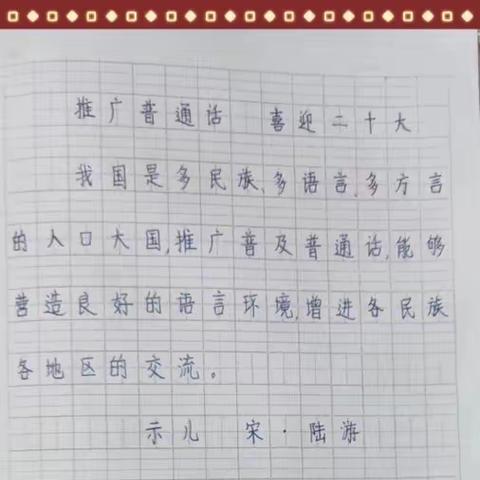 推广普通话 喜迎二十大
我国是多民族、多语言、多方言
的人口大国,推广普及普通话,能够
营造良好的语言环境,增进各民族
各地区的交流。
示儿 宋·陆游